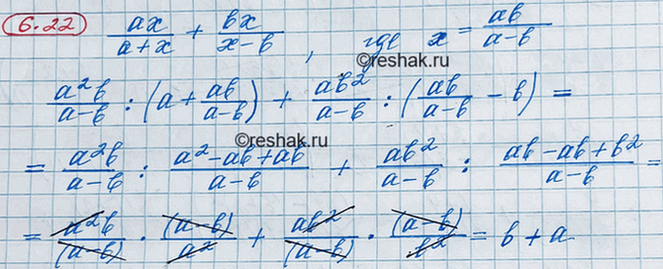 6.22 ax/(a+x) + bx/(x-b), где x = ab/(a-b)
©reshak.ru
a²b/(a-b) : (a + ab/(a-b)) + ab²/(a-b) : (ab/(a-b) - b) =
©reshak.ru
= a²b/(a-b) : (a²-ab+ab)/(a-b) + ab²/(a-b) : (ab-ab+b²)/(a-b) =
= a²b/(a-b) · (a-b)/a² + ab²/(a-b) · (a-b)/b² = b + a